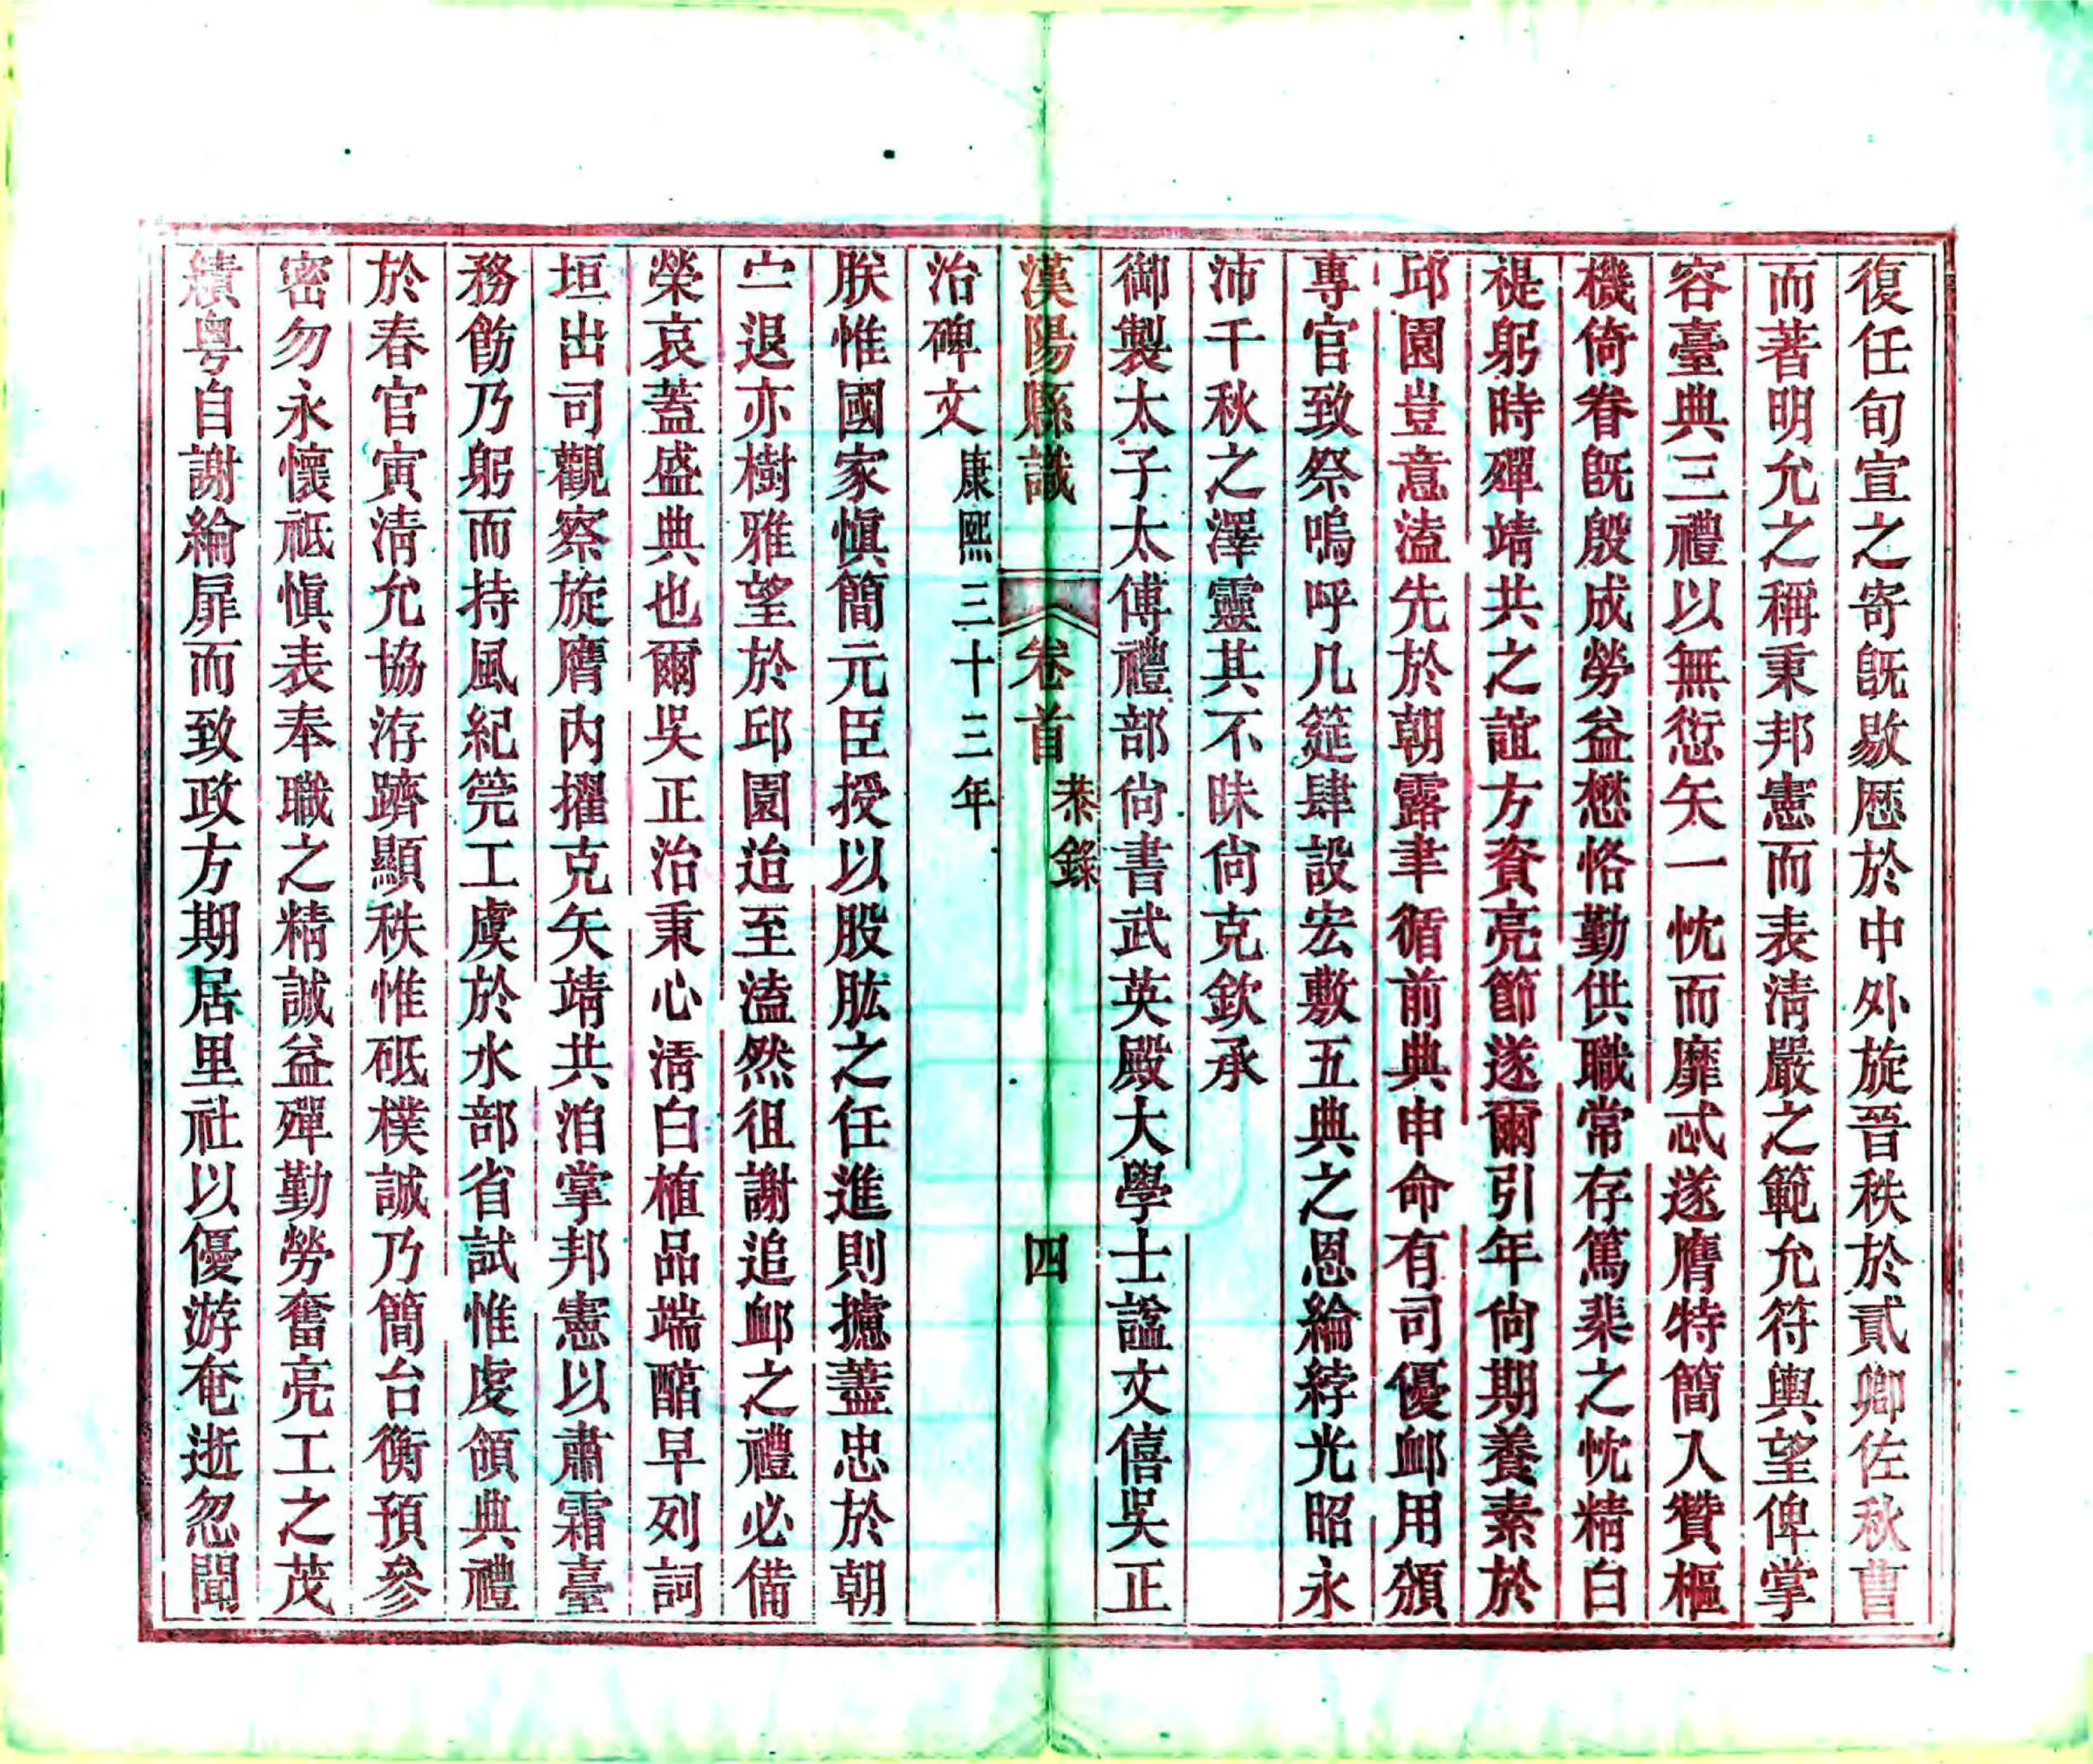 復任旬宣之寄既敭歷於中外旋晉秩於貳卿佐秋曹
而著明允之稱秉邦憲而表清嚴之範允符輿望俾掌
容臺典三禮以無愆矢一忱而靡忒遂膺特簡入贊樞
機倚眷既殷成勞益懋恪勤供職常存篤棐之忱精白
禔躬時殫靖共之誼方資亮節遂爾引年尙期養素於
邱園豈意溘先於朝露聿循前典申命有司優䘏用頒
專官致祭嗚呼几筵肆設宏敷五典之恩綸綍光昭永
沛千秋之澤靈其不昧尙克欽承
御製太子太傅禮部尙書武英殿大學士諡文僖吳正
漢陽縣識 卷首 恭錄 四
治碑文康熙三十三年
朕惟國家愼簡元臣授以股肱之任進則攄藎忠於朝
宁退亦樹雅望於邱園迨至溘然徂謝追䘏之禮必備
榮哀蓋盛典也爾吳正治秉心淸白植品端醕早列詞
垣出司觀察旋膺內擢克矢靖共洎掌邦憲以肅霜臺
務飭乃躬而持風紀筦工虞於水部省試惟虔領典禮
於春官寅清允協洊躋顯秩惟砥樸誠乃簡台衡預參
密勿永懷祗愼表奉職之精誠益殫勤勞奮亮工之茂
績粵自謝綸扉而致政方期居里社以優游奄逝忽聞